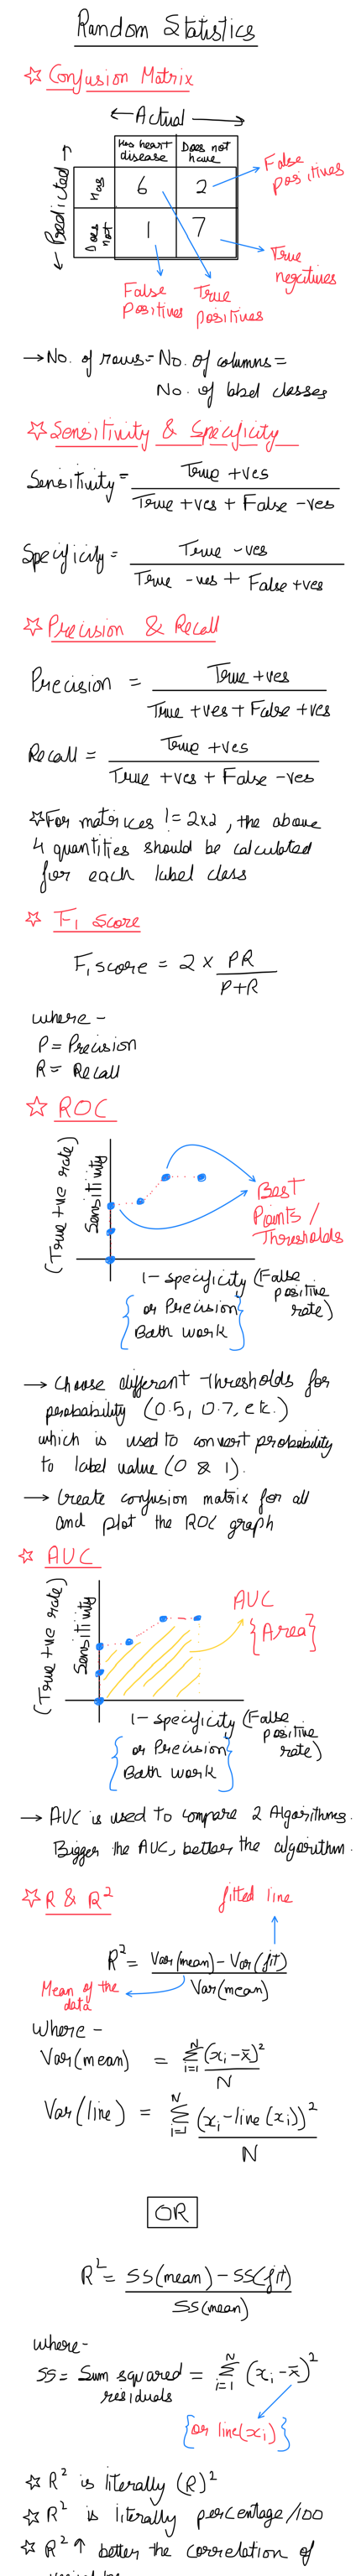 Random Statistics
☆ Confusion Matrix
← Actual →
Has heart disease
Does not have
← Predicted →
Has
6
2
False positives
Does not
1
7
True negatives
False positives
True positives
→ No. of rows = No. of columns =
No. of label classes
☆ Sensitivity & Specificity
Sensitivity = True +ves
True +ves + False -ves
Specificity = True -ves
True -ves + False +ves
☆ Precision & Recall
Precision = True +ves
True +ves + False +ves
Recall = True +ves
True +ves + False -ves
☆ For matrices != 2x2, the above
4 quantities should be calculated
for each label class
☆ F1 score
F1 score = 2 × PR
P+R
where -
P = Precision
R = Recall
☆ ROC
(True +ve rate)
Sensitivity
Best
Points /
Thresholds
1 - specificity (False positive rate)
{ or Precision
Both work }
→ Choose different thresholds for
probability (0.5, 0.7, etc.)
which is used to convert probability
to label value (0 & 1).
→ Create confusion matrix for all
and plot the ROC graph
☆ AUC
(True +ve rate)
Sensitivity
AUC
{Area}
1 - specificity (False positive rate)
{ or Precision
Both work }
→ AUC is used to compare 2 Algorithms.
Bigger the AUC, better the algorithm.
☆ R & R²
fitted line
R² = Var(mean) - Var(fit)
Var(mean)
Mean of the data
Where -
Var(mean) = Σ i=1 N (xi - x̄)²
N
Var(line) = Σ i=1 N (xi - line(xi))²
N
OR
R² = SS(mean) - SS(fit)
SS(mean)
where -
SS = Sum squared residuals = Σ i=1 N (xi - x̄)²
{or line(xi)}
☆ R² is literally (R)²
☆ R² is literally percentage/100
☆ R² ↑ better the correlation of